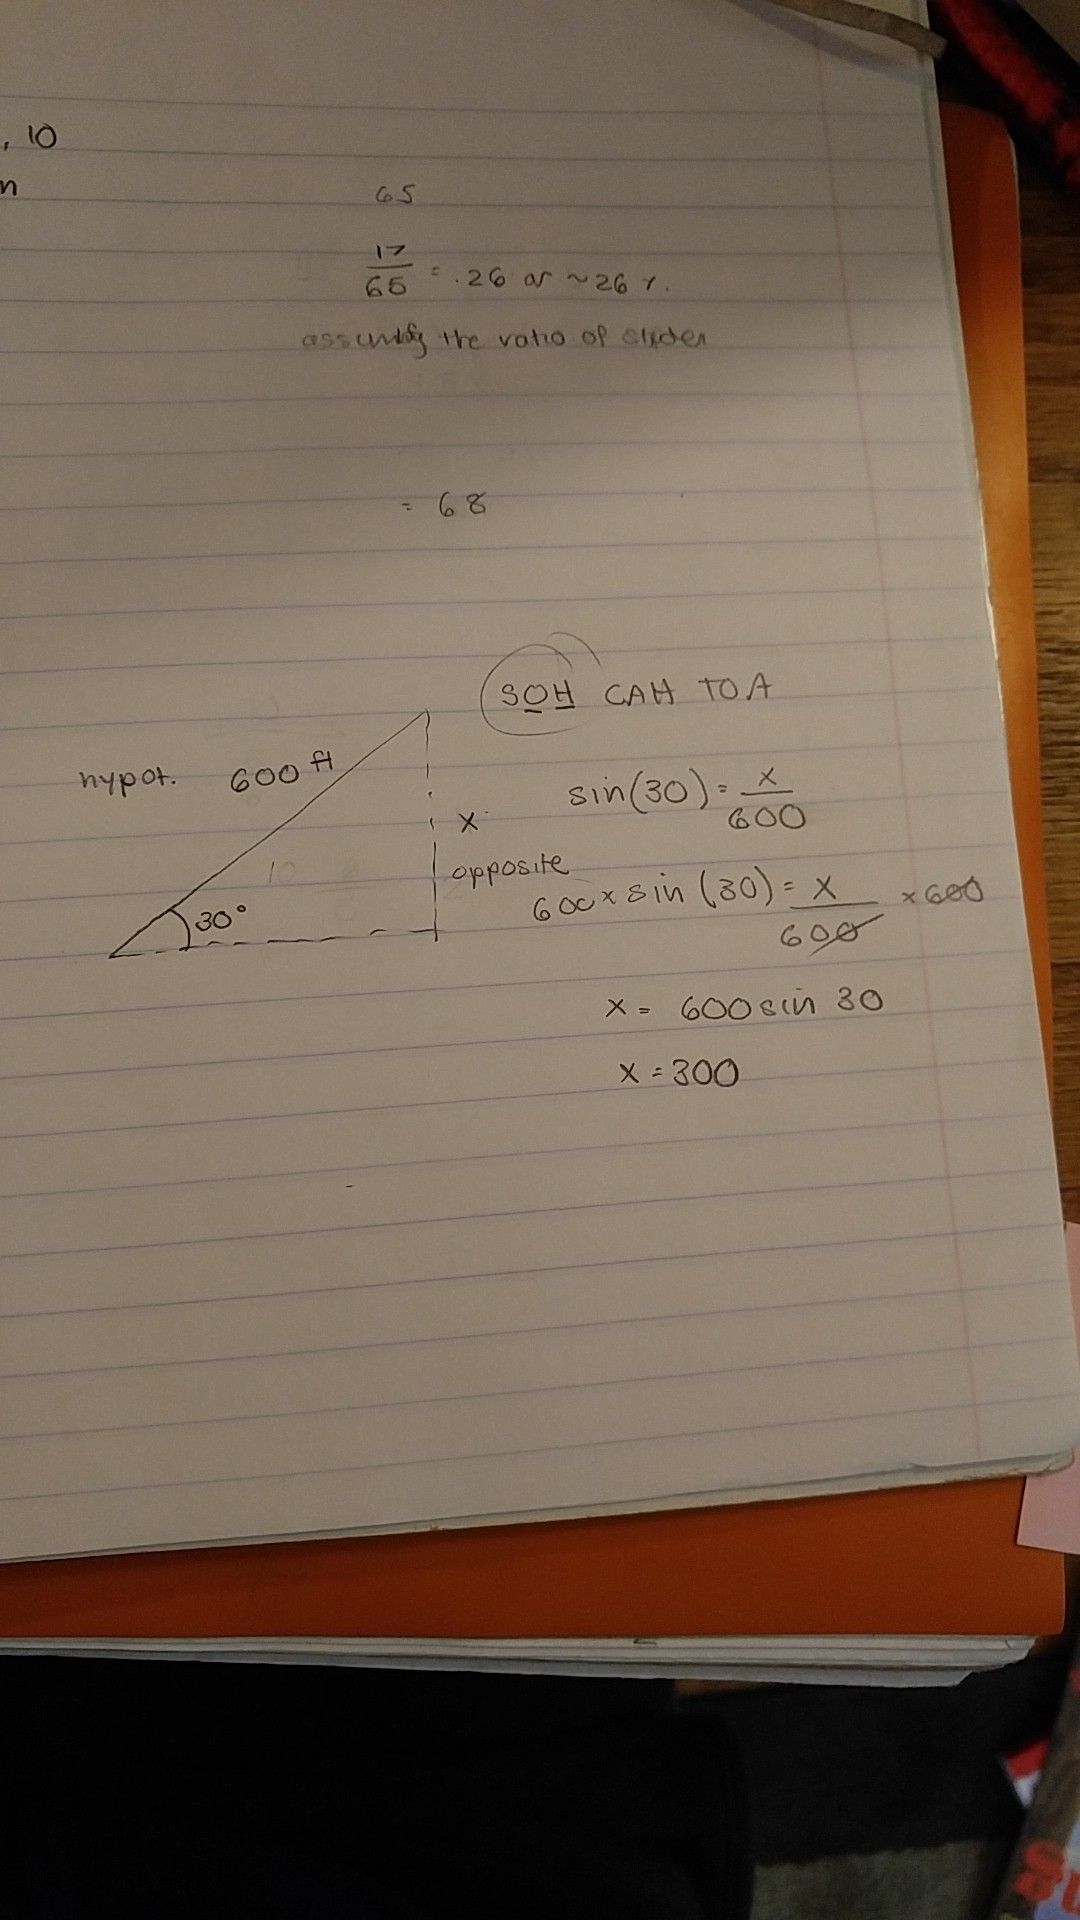 , 10
n
65
17
65 = .26 or ~26 %.
the ratio of
= 68
SOH CAH TOA
hypot. 600 ft
sin(30) = x
600
x
opposite
600 x sin (30) = x x 600
600
30°
x = 600 sin 30
x = 300